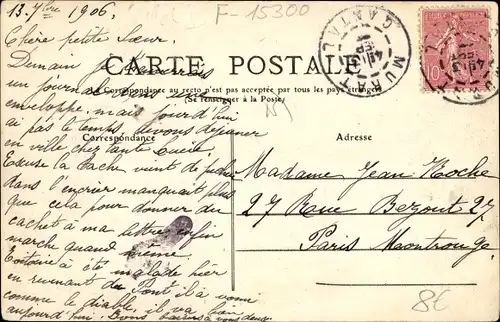 13, 7bre 1906.
F-15300
Chère petite Sœur.
Demain je t'enverrais
un journal sans
enveloppe, mais jour d'hui
ai pas le temps, devons déjeuner
en ville chez tante
Excuse la tache vient de
dans l'encrier manquait plus
que cela pour donner du
cachet à ma lettre enfin
marche quand même.
a été malade hier
en revenant du Pont il a vomi
comme le diable, il va bien
aujourd'hui. Bons baisers à vous deux.
CARTE POSTALE
La Correspondance au recto n'est pas acceptée par tous les pays étrangers
(Se renseigner à la Poste)
Correspondance
Adresse
MURAT
CANTAL
10
Madame Jean Roche
27 Rue Bezout 27
Paris Montrouge.
8€